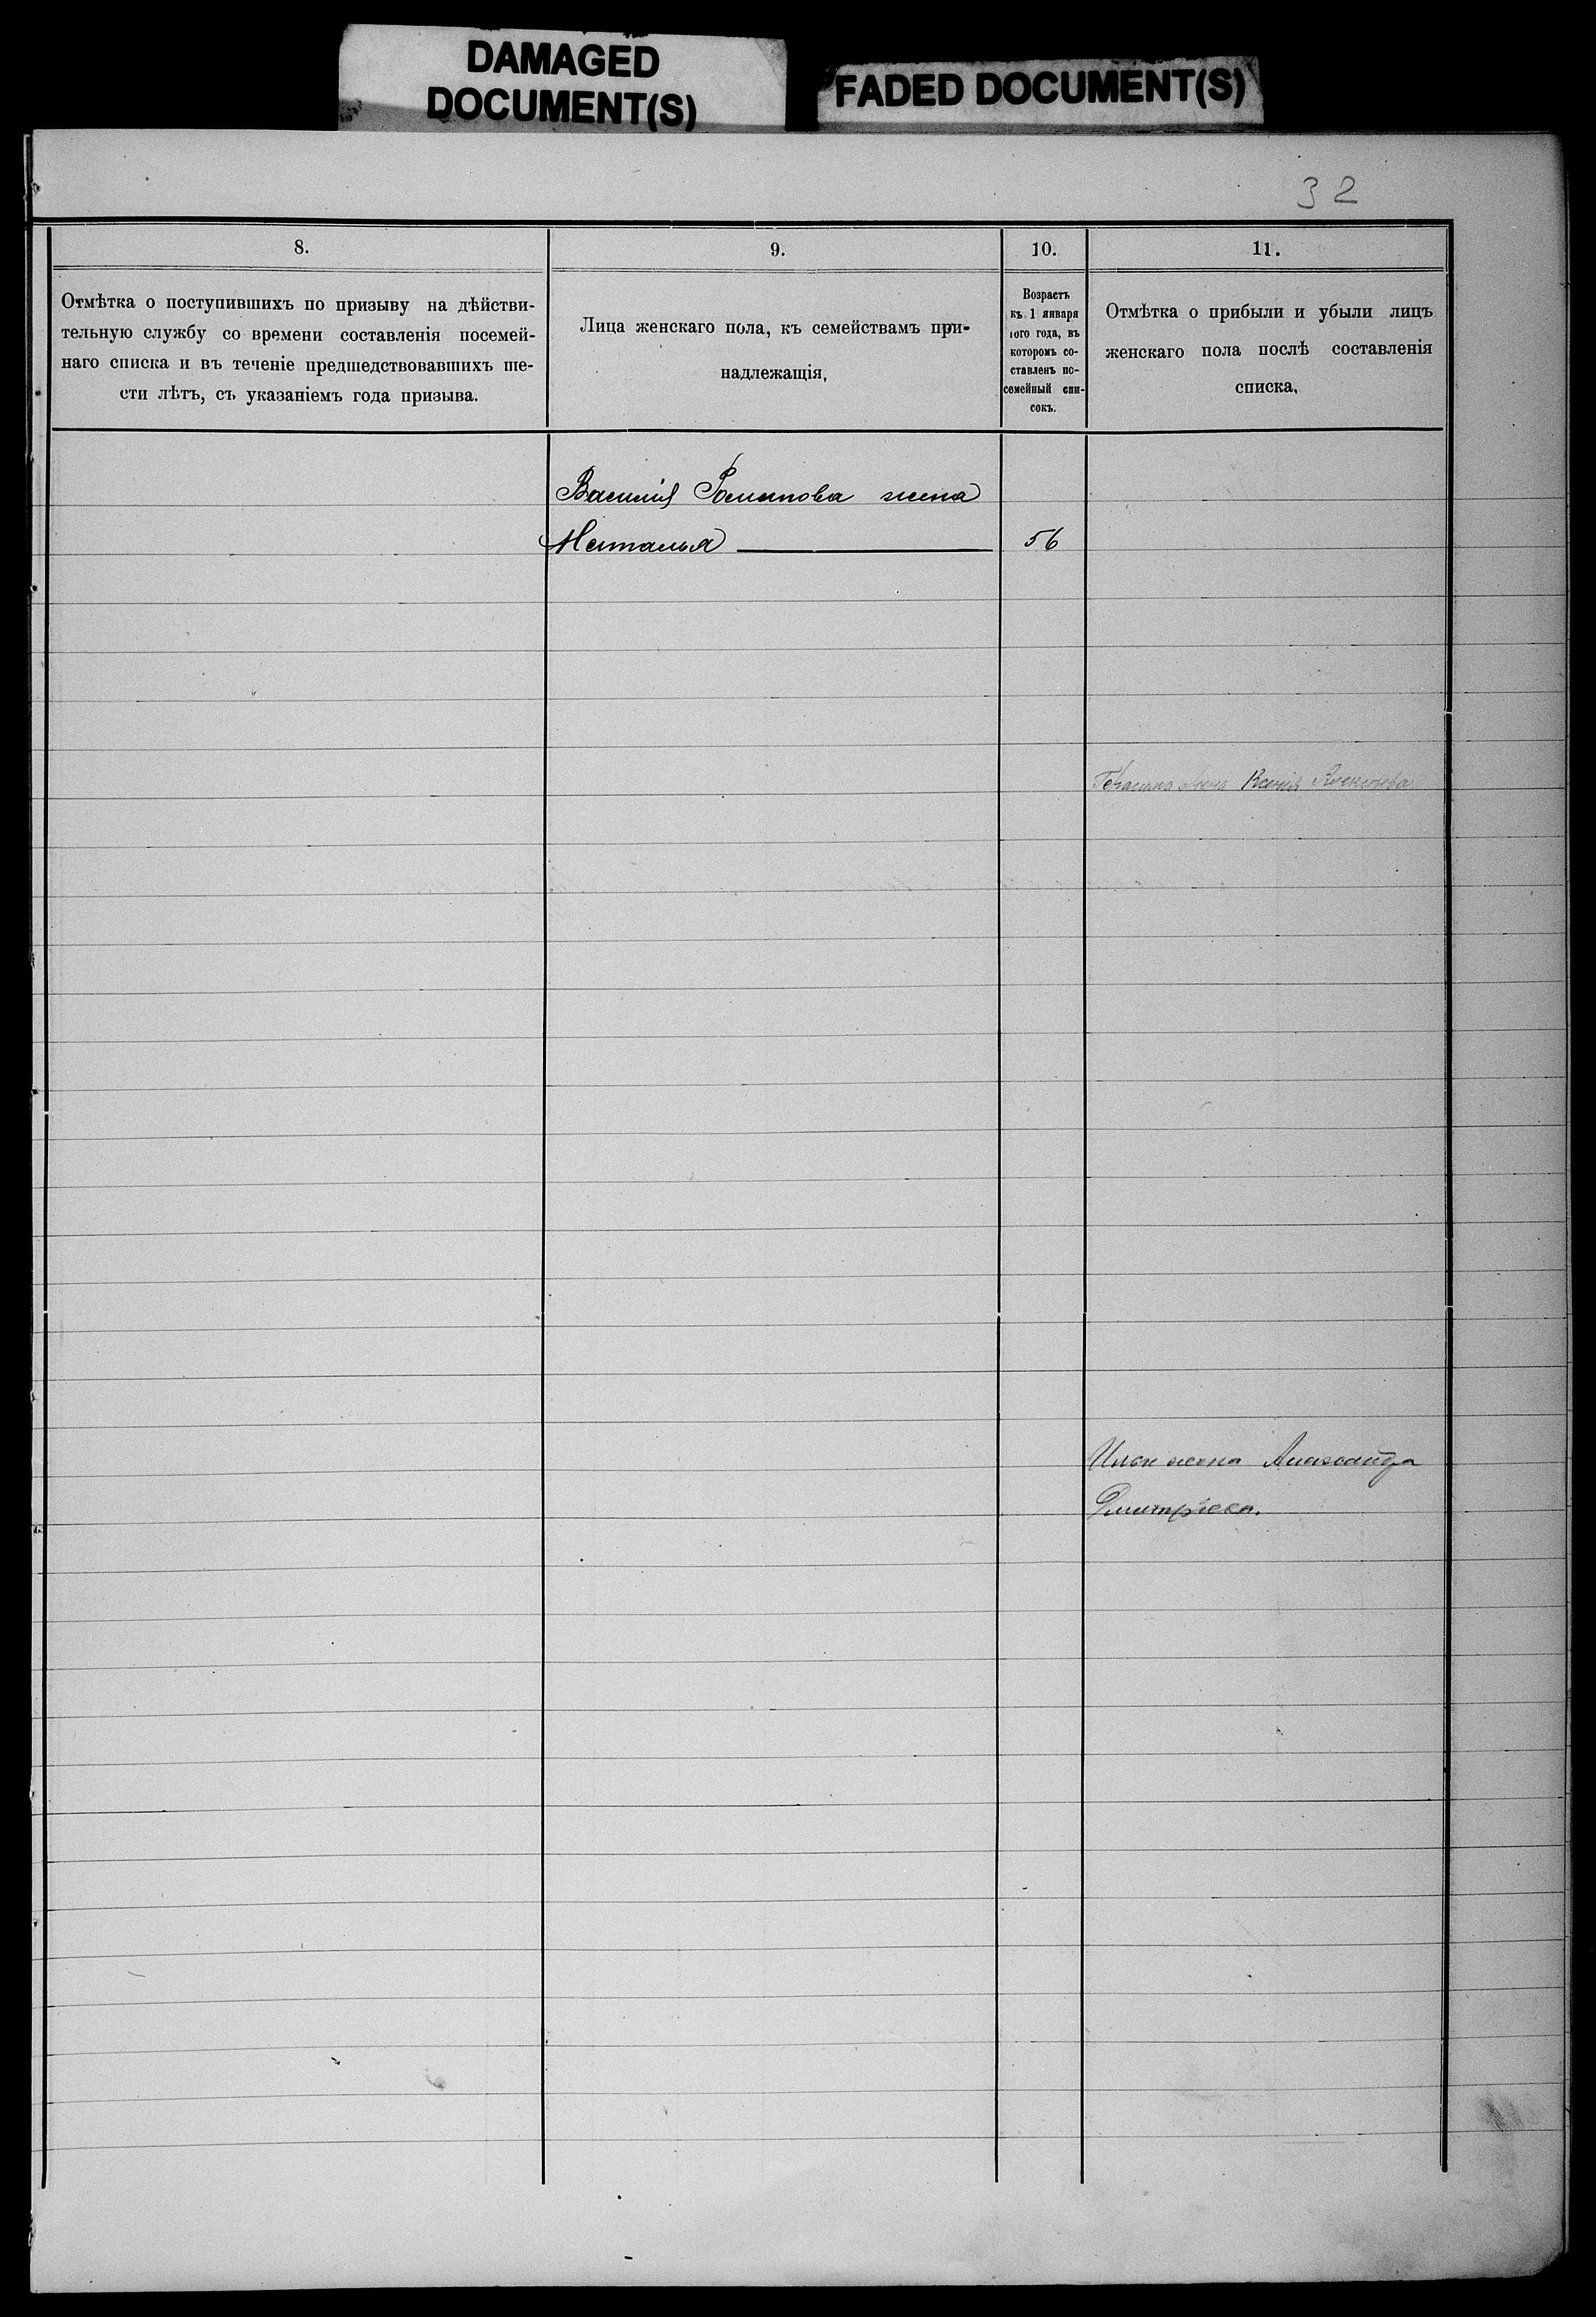 DAMAGED
DOCUMENT(S)
FADED DOCUMENT(S)
32
8.
Отмѣтка о поступившихъ по призыву на дѣйстви-
тельную службу со времени составленія посемей-
наго списка и въ теченіе предшедствовавшихъ ше-
сти лѣтъ, съ указаніемъ года призыва.
9.
Лица женскаго пола, къ семействамъ при-
надлежащія,
10.
Возрастъ
къ 1 января
того года, въ
которомъ со-
ставленъ по-
семейный спи-
сокъ.
11.
Отмѣтка о прибыли и убыли лицъ
женскаго пола послѣ составленія
списка,
Василія Романова жена
Наталья 56
Герасима жена Ксенія
жена Александра